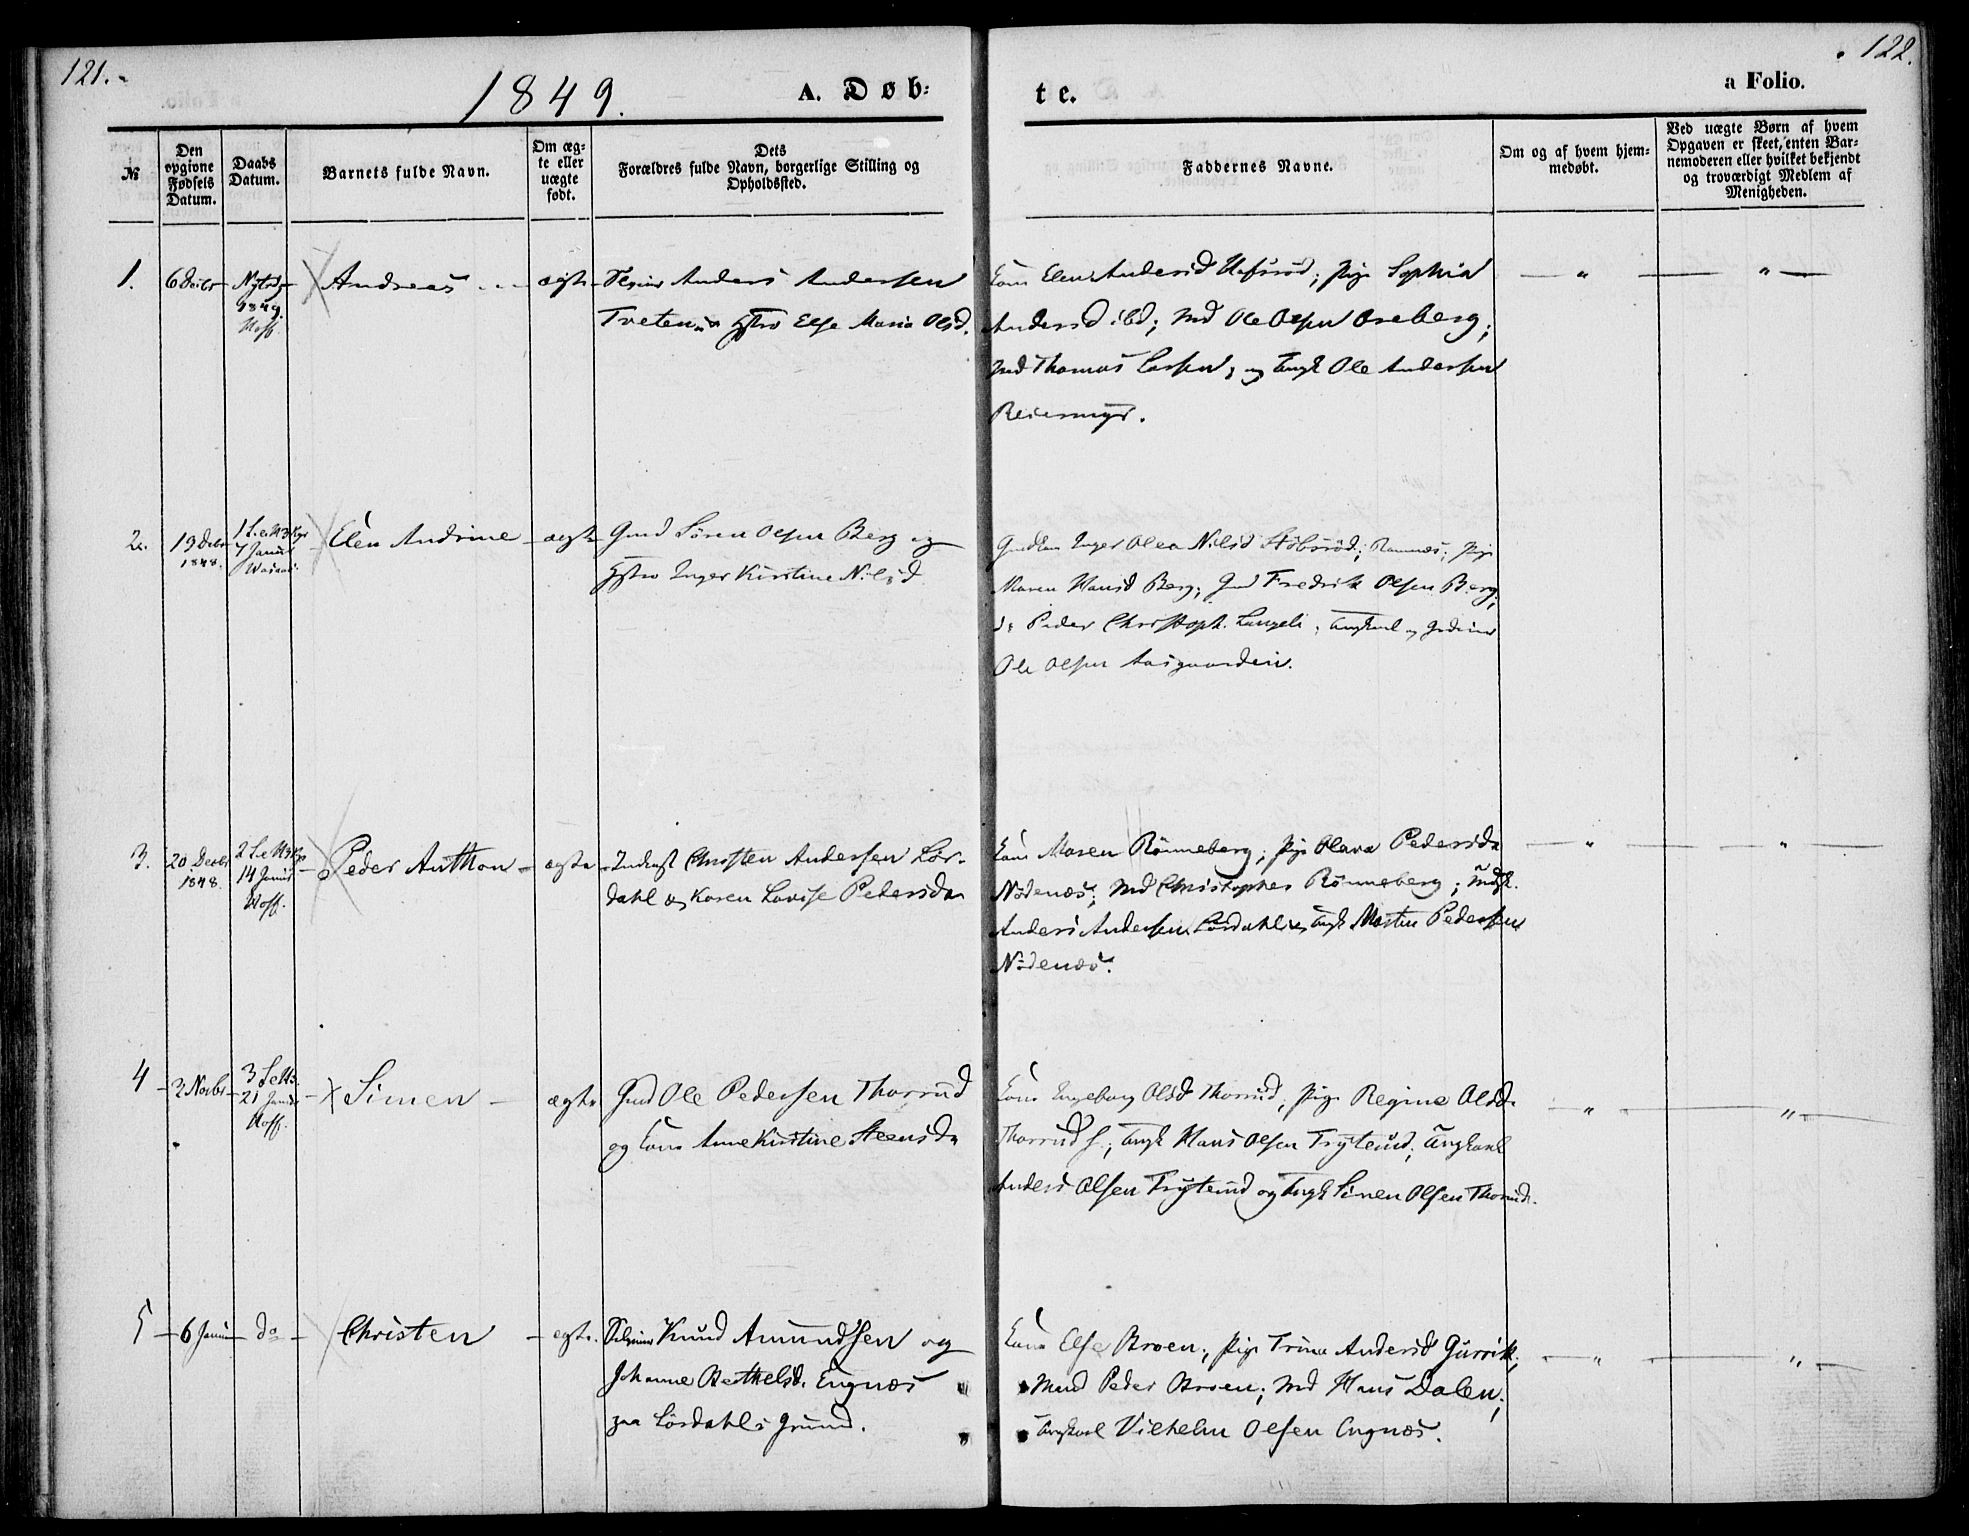 121.
1849.
A. Døb:
te.
a Folio.
122.
№
Den opgivne Fødsels Datum.
Daabs Datum.
Barnets fulde Navn.
Om æg-
te eller
uægte
født.
Dets
Forældres fulde Navn, borgerlige Stilling og
Opholdssted.
Faddernes Navne.
Om og af hvem hjem-
medøbt.
Ved uægte Børn af hvem
Opgaven er skeet, enten Bar-
nemoderen eller hvilket bekjendt
og troværdigt Medlem af
Menigheden.
1.
1849.
Andreas
ægte
Anders Andersen
Tveten og Hstro Else Maria Olsd.
Kone Elen Andersd Hafsrød; Pige Sophia
Andersd ibd; Md Ole Olsen Oreberg;
Md Thomas Larsen; og Ungk Ole Andersen
Reiersmyr.
2.
19 Debr
1848.
7 Januar
Elen Andrine
ægte
Gmd Søren Olsen Berg og
Hstro Inger Kirstine Nilsd
Inger Olea Nilsd Ramnæs; Pige
Maren Hansd Berg; Gmd Fredrik Olsen Berg;
do Peder Christoph. Langeli; Ungkarl og
Ole Olsen Aasgaarden.
3.
20 Decbr
1848.
14 Januar
Hoff.
Peder Anthon
ægte
Inderst Christen Andersen Lør-
dahl og Karen Lovise Pedersda
Kone Maren Rönneberg; Pige Olava Pedersda
Nödenæs; Md Christopher Rönneberg;
Anders Andersen Lørdahl og Ungk Martin Pedersen
Nödenæs.
4
3 Novbr
21 Januar
Hoff.
Simen
ægte
Gmd Ole Pedersen Thorrud
og Kone Anne Kirstine Steensda
Kone Ingeborg Olsd Thorrud; Pige Regine Olsd.
Thorrud; Ungk Hans Olsen Tryterud; Ungkarl
Anders Olsen Tryterud og Ungk Simen Olsen Thorrud.
5
6 Januar
do
Christen
egte.
Knud Amundsen og
Johanne Berthelsd. Engnæs
paa Lørdahls Grund.
Kone Else Broen; Pige Trine Andersd Gurrik;
Mand Peder Broen; Md Hans Dalen;
Ungkarl Vilhelm Olsen Engnæs.